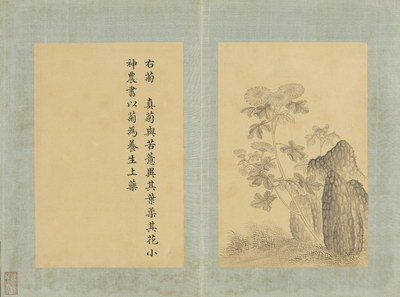 右菊　真菊與苦薏異其葉柔其花小
神農書以菊為養生上藥